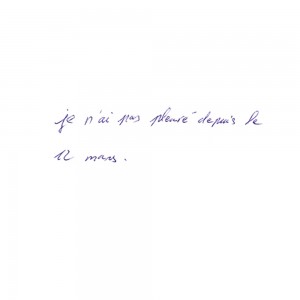 je n'ai pas pleuré depuis le
12 mars.